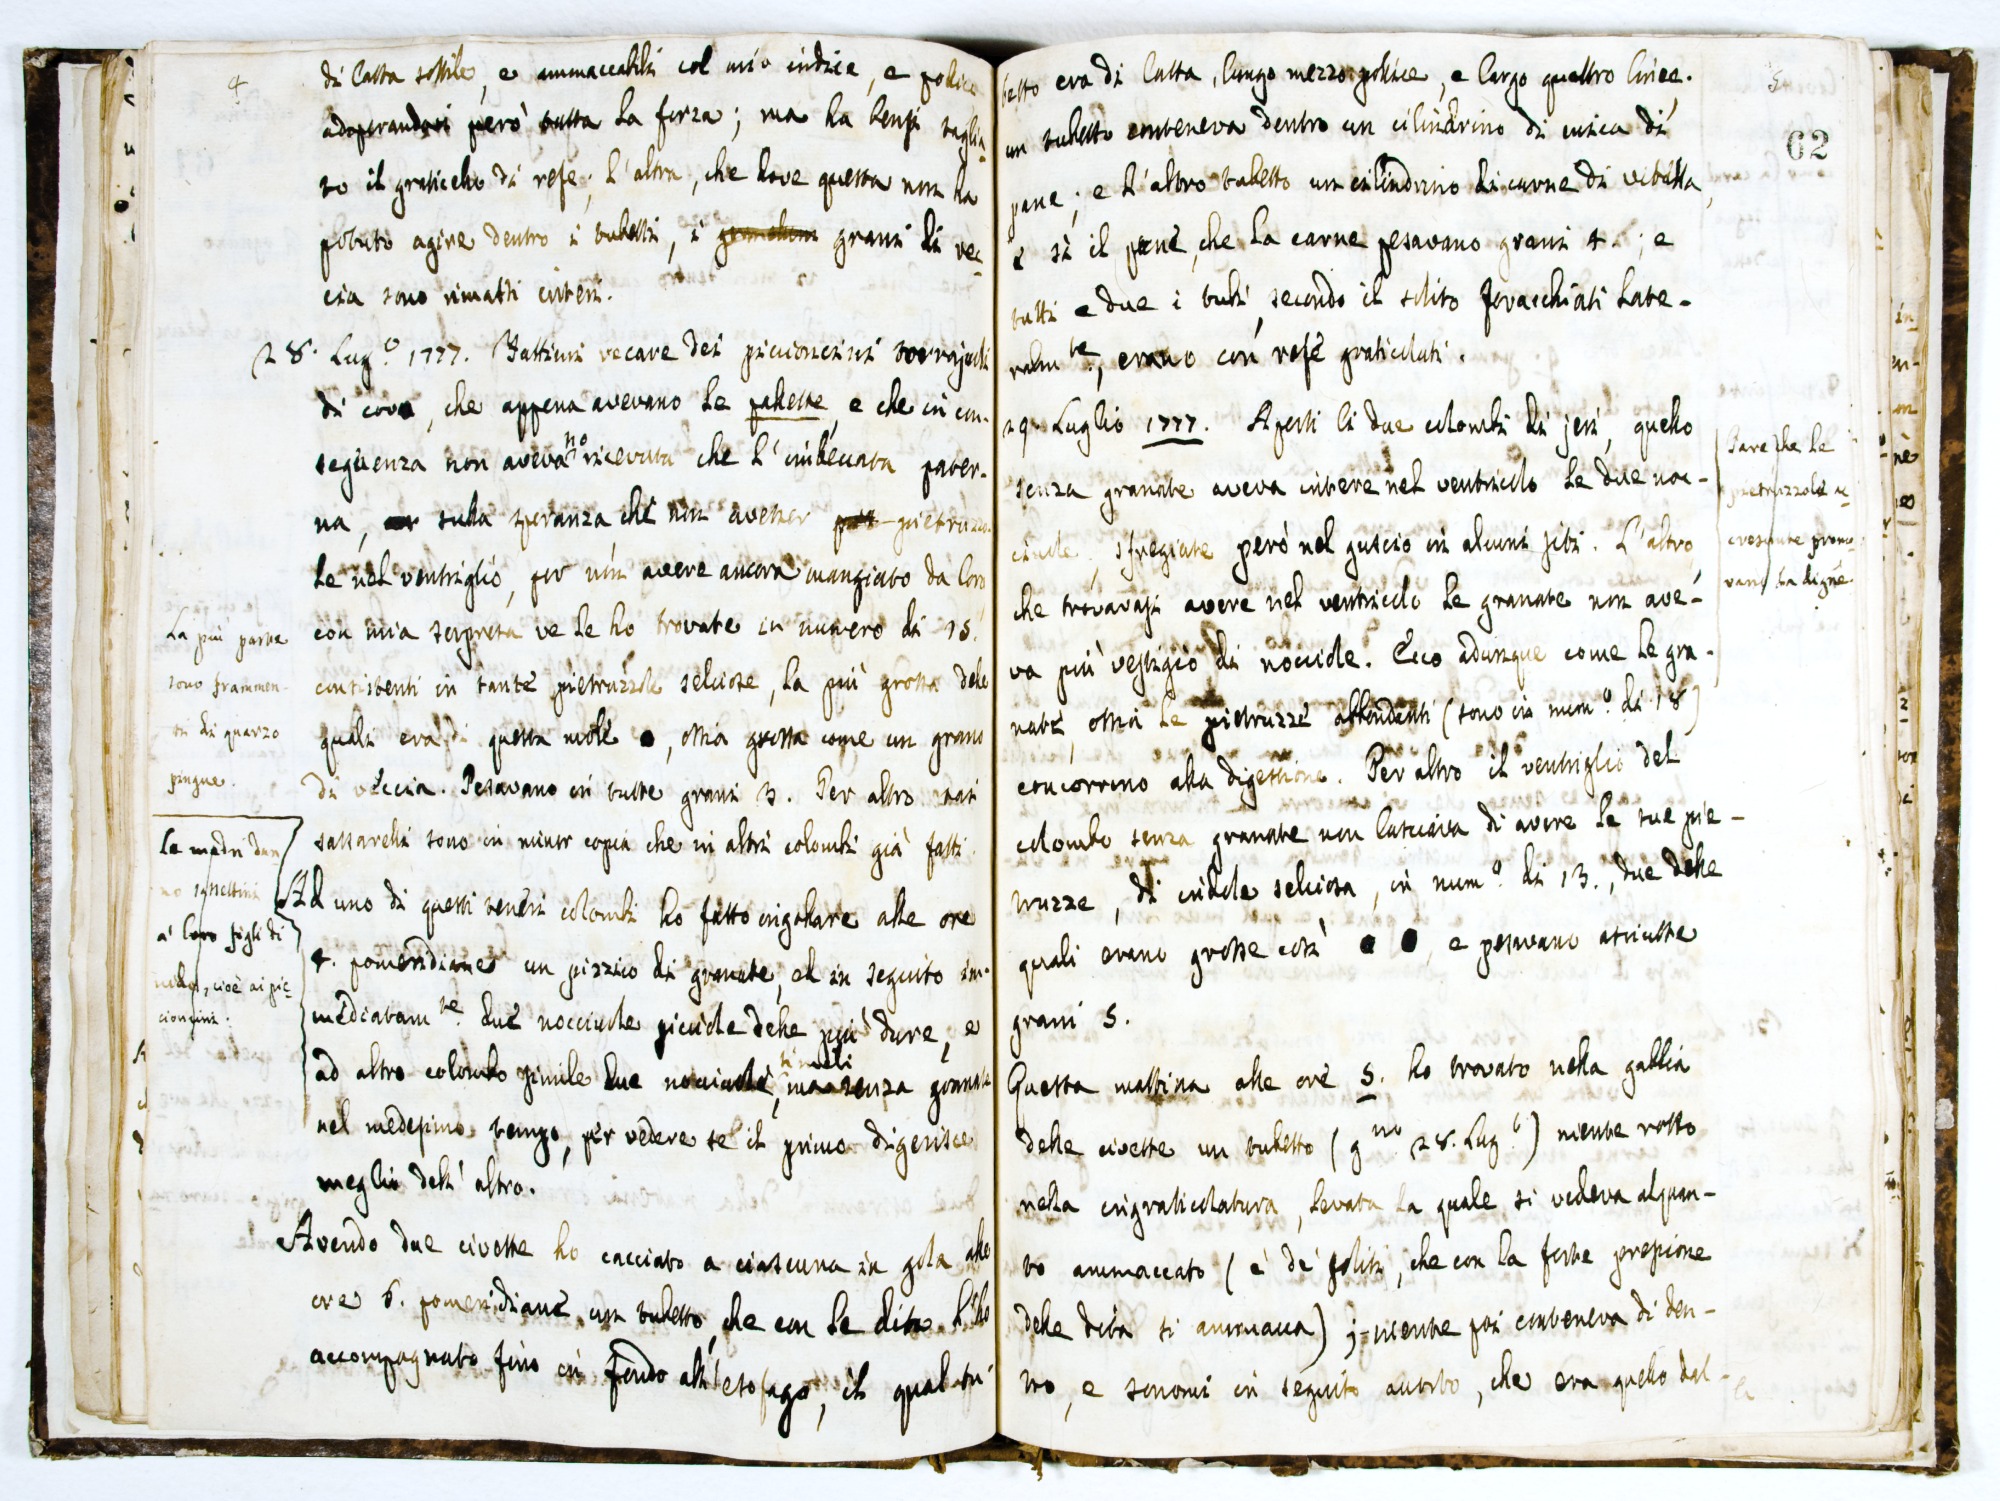 4
di latta sottile, e ammaccabili col mio indice, e pollice
adoperandovi però tutta la forza; ma ha bensì taglia-
to il graticcio di refe; l'altra, che dove questa non ha
potuto agire dentro i tubetti, i grani di vec-
cia sono rimasti interi.
28. Lug.o 1777. Fattimi recare dei piccioncini torrajuoli
di covo, che appena avevano le palette, e che in con-
seguenza non avevano ricevuta che l'imbeccata pater-
na, sulla speranza che non avesser pietruzzo-
le nel ventriglio, per non avere ancora mangiato da loro
con mia sorpresa ve le ho trovate in numero di 15.
consistenti in tante pietruzzole selciose, la più grossa delle
quali era di questa mole, ossia grossa come un grano
di veccia. Pesavano in tutte grani 3. Per altro tai
sassarelli sono in minor copia che in altri colombi già fatti.
Ad uno di questi teneri colombi ho fatto ingoliare alle ore
4. pomeridiane un pizzico di granate, ed in seguito im-
mediatam.te due nocciuole picciole delle più dure, e
ad altro colombo simile due nocciuole simili, ma senza granate
nel medesimo tempo, per vedere se il primo digerisce
meglio dell'altro.
Avendo due civette ho cacciato a ciascuna in gola alle
ore 6. pomeridiane un tubetto, che con le dita l'ho
accompagnato fino in fondo all'esofago, il qual tu-
La più parte
sono frammen-
ti di quarzo
pingue.
Le madri dan
no
a' loro figli di
nido, cioè ai pic-
cioncini.
5
62
betto era di latta, lungo mezzo pollice, e largo quattro linee.
un tubetto conteneva dentro un cilindrino di mica di
pane; e l'altro tubetto un cilindrino di carne di vitella,
e sì il pane, che la carne pesavano grani 4.; e
tutti e due i tubi, secondo il solito foracchiati late-
ralm.te, erano con refe graticolati.
29. Luglio 1777. Aperti li due colombi di jeri, quello
senza granate aveva intere nel ventricolo le due noc-
ciuole, sfregiate però nel guscio in alcuni siti. L'altro,
che trovavasi avere nel ventricolo le granate non ave-
va più vestigio di nocciole. Ecco adunque come le gra-
nate, ossia le pietruzze (sono in num.o di 18)
concorrono alla digestione. Per altro il ventriglio del
colombo senza granate non lasciava di avere le sue pie-
truzze, di indole selciosa, in num.o di 13., due delle
quali erano grosse così, e pesavano asciutte
grani 5.
Questa mattina alle ore 5. ho trovato nella gabbia
delle civette un tubetto (g.no 28. Lug.o) niente rotto
nella ingraticolatura, levata la quale si vedeva alquan-
to ammaccato (è de' soliti, che con la forte pressione
delle dita si ammacca); niente poi conteneva di den-
tro, e sonomi in seguito accorto, che era quello dal-
Pare che le
pietruzzole ac-
cresciute promo-
vano la digne.